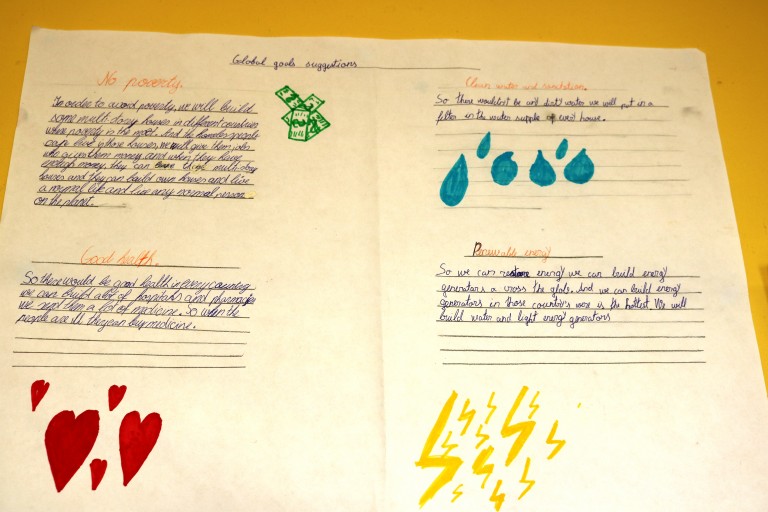 Global goals suggestions
No poverty.
In order to avoid poverty, we will build
some multi dory houses in different countries
where poverty is the most. And the homeles people
can live in those houses, we will give them jobs
who gives them money and when they have
enough money they can leave multi-story
houses and they can build own houses and live
a normal life and live any normal person
on the planet.
Clean water and sanitation.
So there wouldn't be any dirty water we will put in a
filter in the water supple of every house.
Good health.
So there would be good health in every country
we can build a lot of hospitals and pharmacies
we rept them a lot of medicine. So when the
people are ill they can buy medicine.
Renewable energy
So we can restore energy we can build energy
generators a cross the globe. And we can build energy
generators in those countris were is the hottest. We will
build water and light energy generators